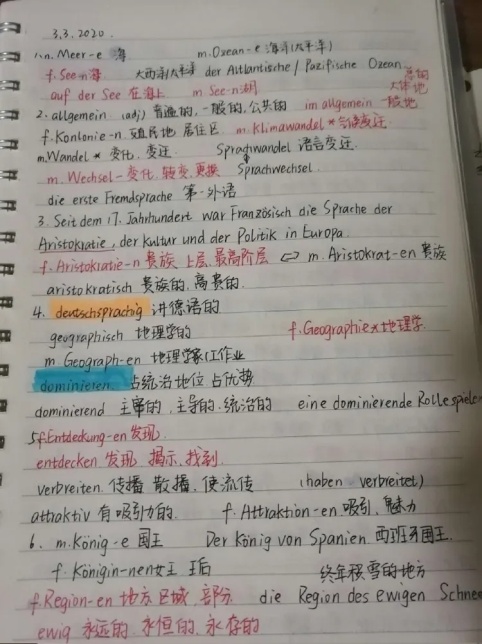 3.3.2020.
1. n. Meer-e 海 m. Ozean-e 海洋(大洋)
f. See-n 海 大西洋/太平洋 der Altlantische / Pazifische Ozean
auf der See 在海上 m See-n 湖 总的 大体地
2. allgemein (adj) 普遍的,一般的,公共的 im allgemein 一般地
f. Konlonie-n 殖民地 居住区 m. Klimawandel * 气候变迁
m. Wandel * 变化,变迁 Sprachwandel 语言变迁
m. Wechsel- 变化,转变,更换 Sprachwechsel.
die erste Fremdsprache 第一外语
3. Seit dem 17. Jahrhundert war Französisch die Sprache der
Aristokratie, der Kultur und der Politik in Europa.
f. Aristokratie-n 贵族 上层,最高阶层 <=> m. Aristokrat-en 贵族
aristokratisch 贵族的,高贵的.
4. deutschsprachig 讲德语的
geographisch 地理学的 f. Geographie * 地理学
m. Geograph-en 地理学家(工作业
dominieren 占统治地位 占优势
dominierend 主宰的,主导的,统治的 eine dominierende Rolle spielen
5 f. Entdeckung-en 发现
entdecken 发现 揭示,找到
verbreiten. 传播 散播,使流传 (haben verbreitet)
attraktiv 有吸引力的. f. Attraktion-en 吸引,魅力
6. m. König-e 国王 Der König von Spanien. 西班牙国王.
f. Königin-nen 女王 王后 终年积雪的地方
f. Region-en 地方 区域,部分 die Region des ewigen Schnee
ewig 永远的 永恒的,永存的